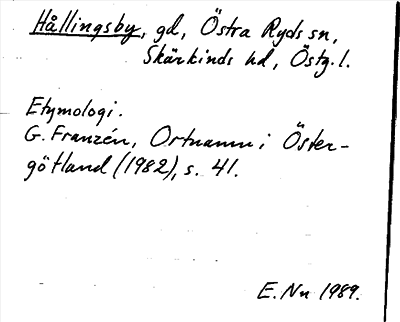 Hållingsby, gd, Östra Ryds sn,
Skärkinds hd, Östg. l.
Etymologi.
G. Franzén, Ortnamn i Öster-
götland (1982), s. 41.
E. Nn 1989.